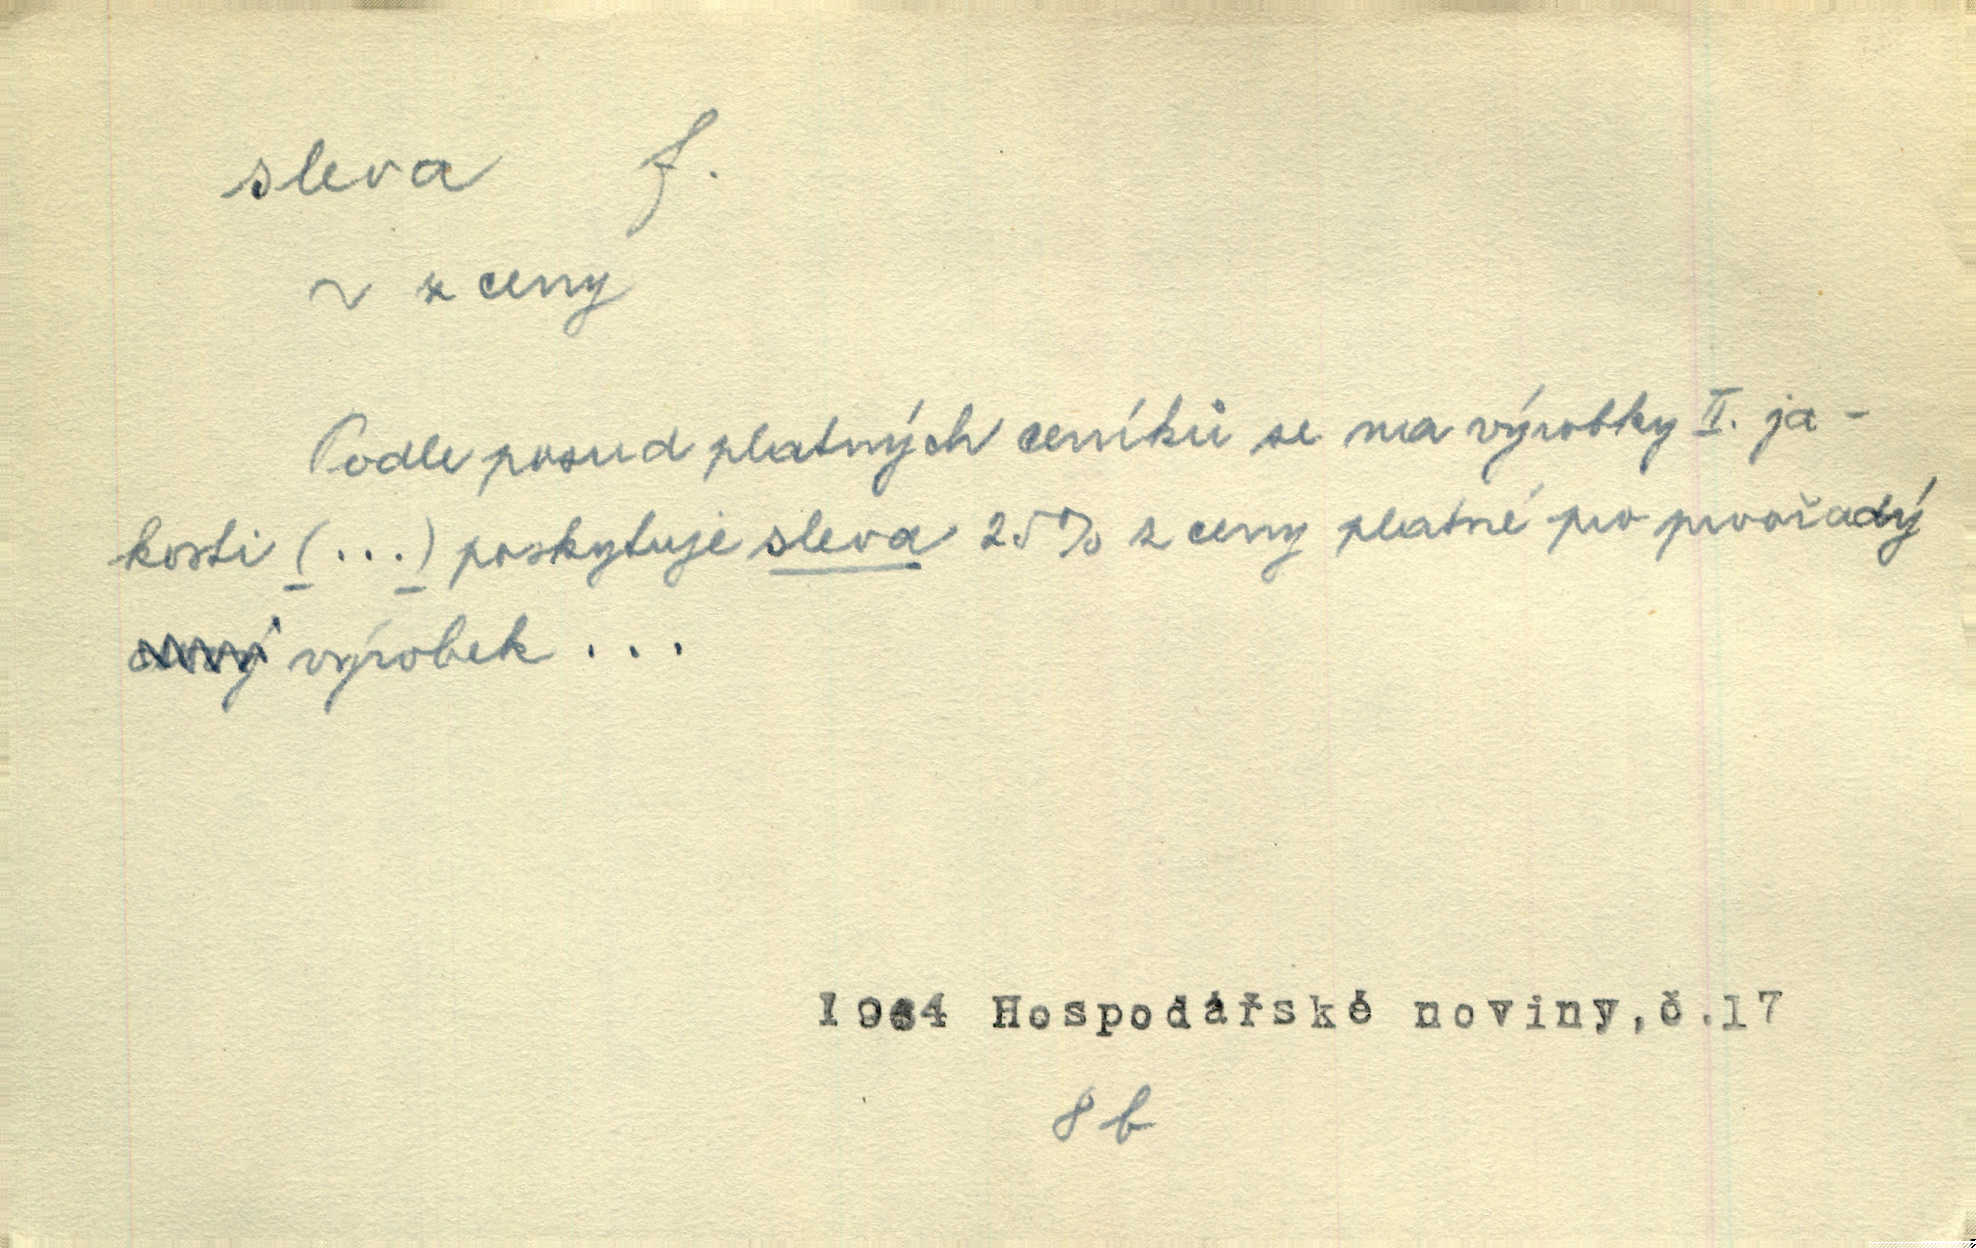 sleva f.
~ z ceny
Podle posud platných ceníků se na výrobky II. ja-
kosti (...) poskytuje sleva 25% z ceny platné pro prvořadý
výrobek ...
1964 Hospodářské noviny, č.17
8b